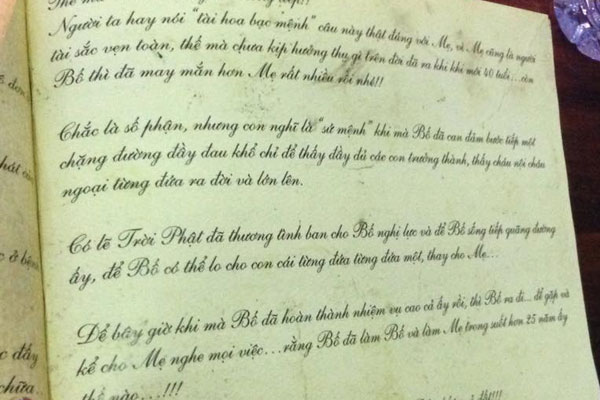 Người ta hay nói “tài hoa bạc mệnh” câu này thật đúng với Mẹ, vì Mẹ cũng là người
tài sắc vẹn toàn, thế mà chưa kịp hưởng thụ gì trên đời đã ra khi khi mới 40 tuổi...còn
Bố thì đã may mắn hơn Mẹ rất nhiều rồi nhé!!
Chắc là số phận, nhưng con nghĩ là “sứ mệnh” khi mà Bố đã can đảm bước tiếp một
chặng đường đầy đau khổ chỉ để thấy đầy đủ các con trưởng thành, thấy cháu nội cháu
ngoại từng đứa ra đời và lớn lên.
Có lẽ Trời Phật đã thương tình ban cho Bố nghị lực và để Bố sống tiếp quãng đường
ấy, để Bố có thể lo cho con cái từng đứa từng đứa một, thay cho Mẹ...
Để bây giờ khi mà Bố đã hoàn thành nhiệm vụ cao cả ấy rồi, thì Bố ra đi... để gặp và
kể cho Mẹ nghe mọi việc...rằng Bố đã làm Bố và làm Mẹ trong suốt hơn 25 năm ấy
thế nào...!!!